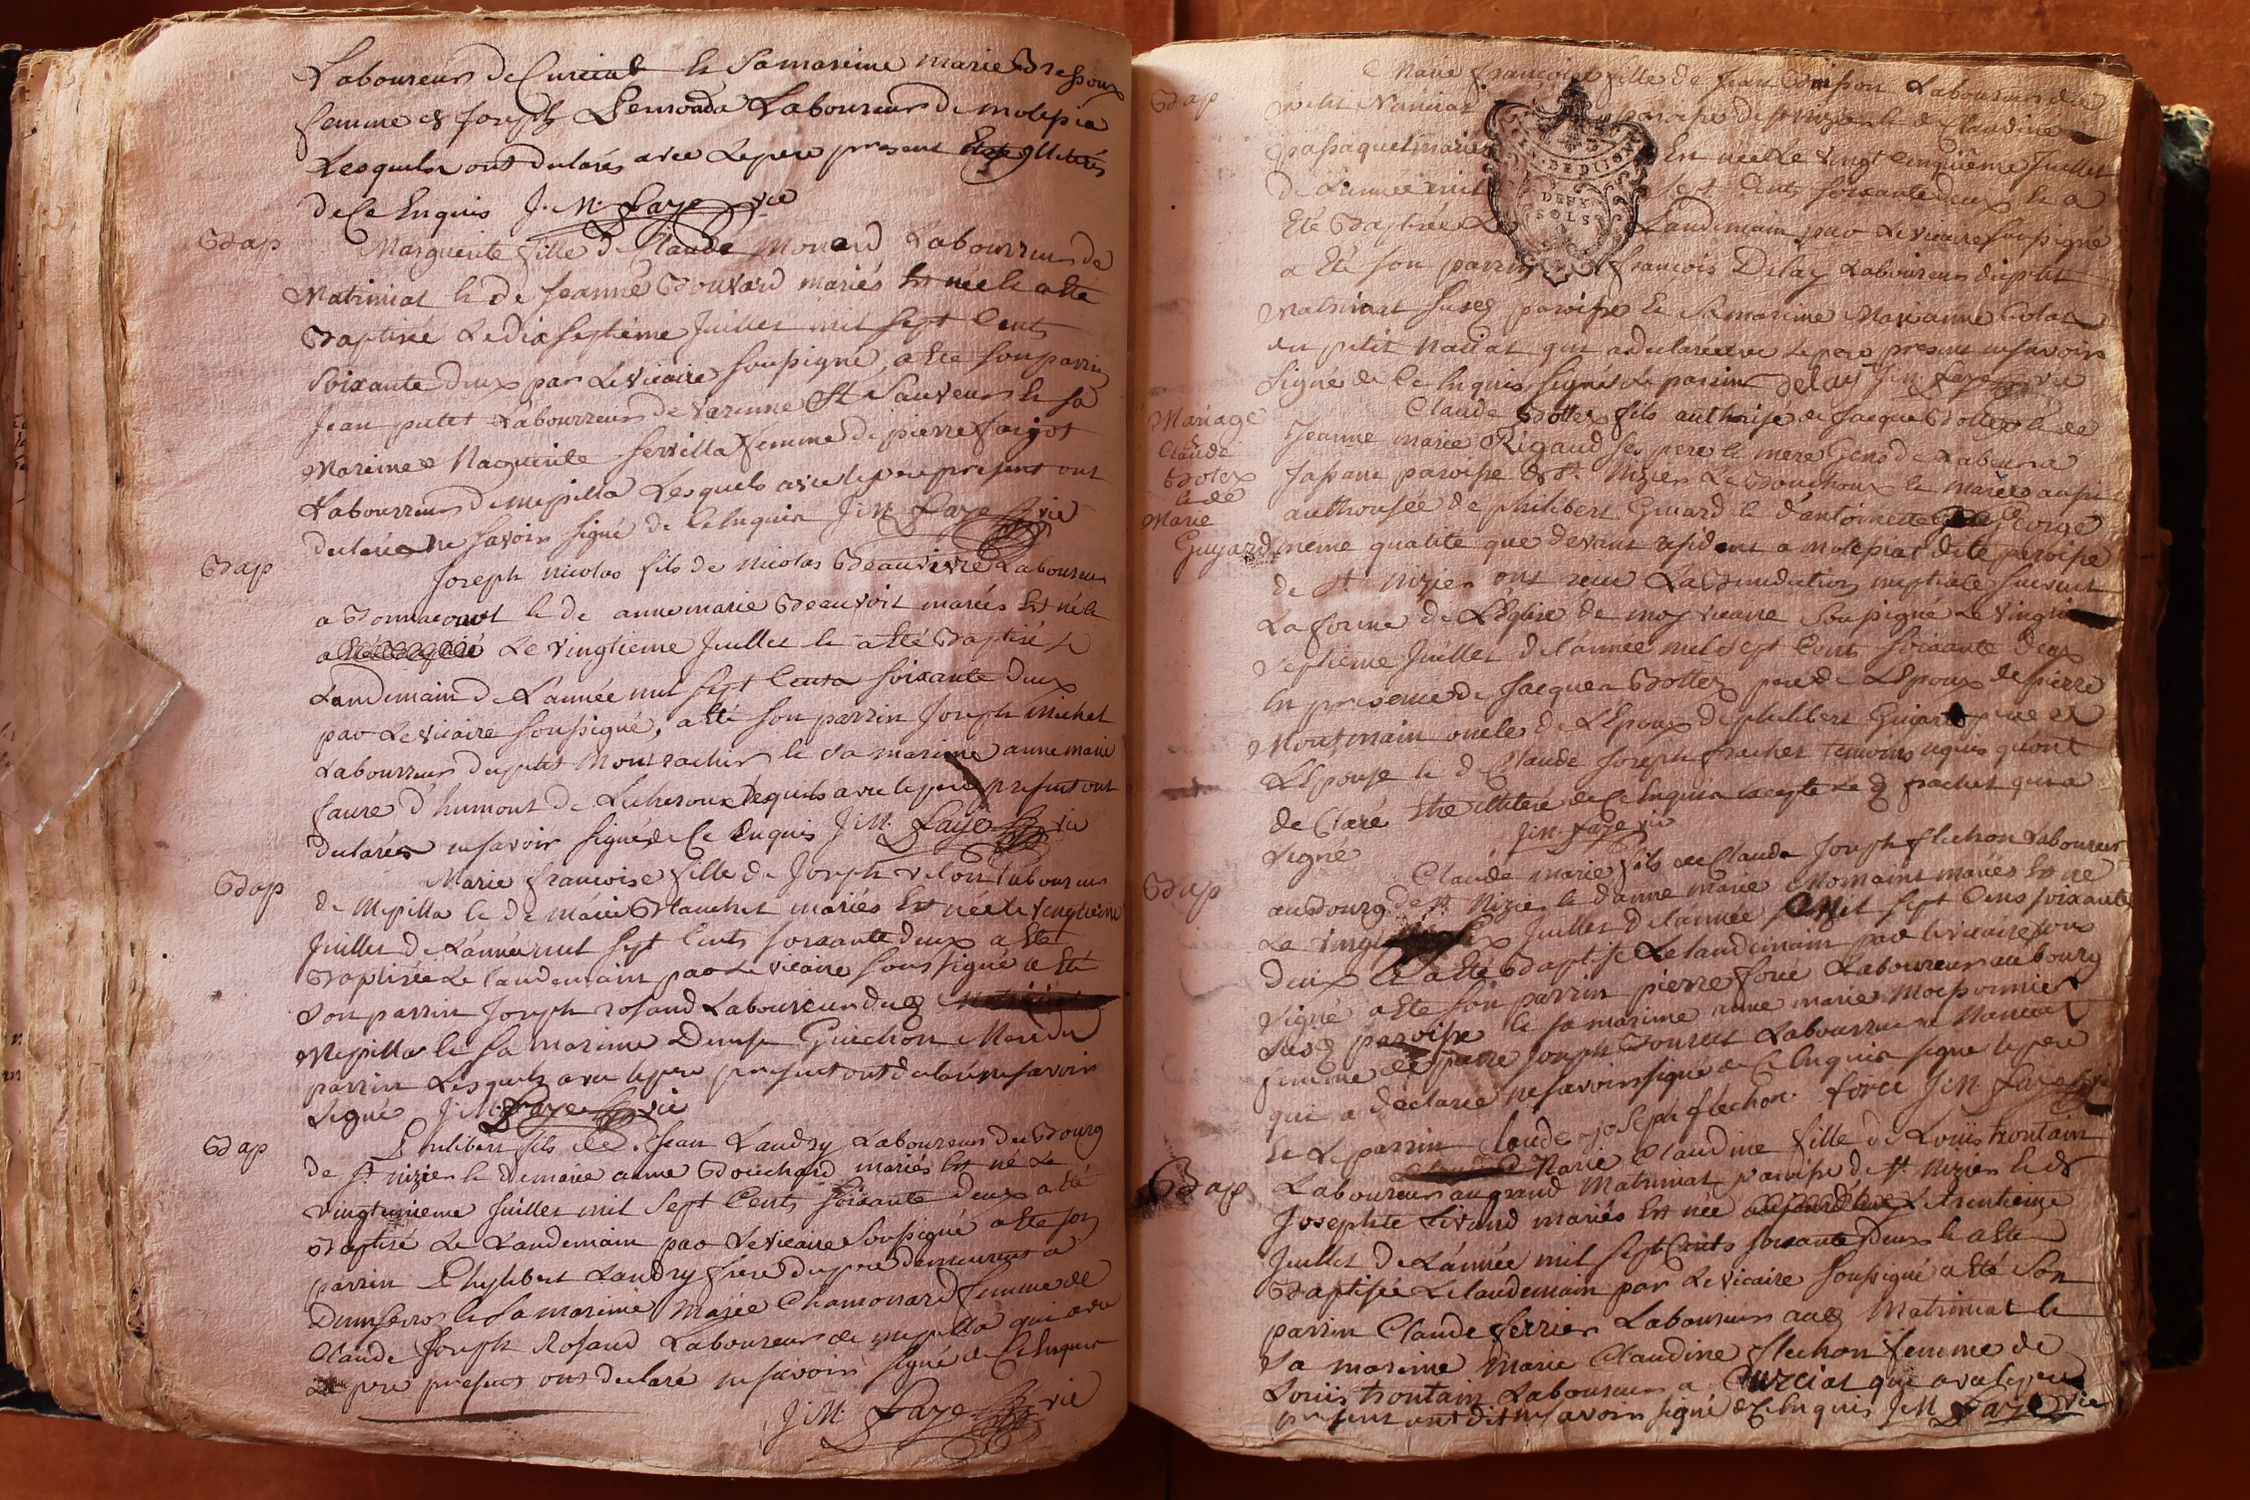 Laboureur de Curciat et sa mareine marie
femme de Joseph Laboureur de molepia
Lesquels ont declarés avec Le pere present illiterés
de Ce Enquis J. M. Faye vic
Bap
Marguerite fille de Claude Monard Labourreur de
Matriniat et de Jeanne Bouvard mariés Est née et a eté
Baptisée Le dix septieme Juillet mil sept Cents
soixante deux par Le vicaire soussigné, a Eté son parrin
Jean putet Labourreur de varenne St Sauveur et sa
Mareine Marguerite servilla femme de pierre
Labourreur de mepilla Lesquels avec le pere present ont
declaré ne savoir signé de Ce Enquis J. M. Faye vic
Bap
Joseph nicolas fils de nicolas Beauvivre Laboureur
a et de anne marie Beauvoit mariés Est né le
Le vingtieme Juillet et a Eté Baptisé Le
Landemain de L'année mil sept Cents soixante deux
par Le vicaire soussigné, a Eté son parrin Joseph michel
Labourreur du petit Montrachir et sa mareine anne marie
faure d'humont de Lesquels avec le pere present ont
declarés ne savoir signé de Ce Enquis J. M. Faye vic
Bap
Marie francoise fille de Joseph velon Laboureur
de Mepilla et de marie Blanchet mariés Est née le vingtieme
Juillet de L'année mil sept Cents soixante deux a Eté
Baptisée Le landemain par Le vicaire soussigné a Eté
son parrin Joseph rosand Laboureur dud
Mepilla et sa mareine Denise Guichon Mere du
parrin Lesquels avec le pere present ont declaré ne savoir
signé J. M. Faye vic
Bap
Philibert fils de Jean Landry Laboureur du Bourg
de St nizier et de marie anne Bouchard mariés Est né Le
vingtunieme Juillet mil Sept Cents soixante deux a Eté
Baptisé Le Landemain par Le vicaire soussigné a Eté son
parrin Phylibert Landry frere du pere demeurant a
et sa mareine Marie Chamonard femme de
Claude Joseph Rosand Laboureur de mepilla qui avec
Le pere present ont declaré ne savoir signé de Ce Enquis
J. M. Faye vic
Bap
Marie francoise fille de Jean Buisson Laboureur du
petit Nanciat paroisse de st nizier et de Claudine
mariés Est née Le vingt Cinquieme Juillet
GEN. DE DIJON
DEUX
SOLS
de L'année mil sept Cents soixante deux et a
Eté Baptisée Le Landemain par Le vicaire soussigné
a Eté son parrin francois Delay Laboureur du petit
Matriniat susd paroisse et sa mareine Marianne
du petit naciat qui a declaré avec Le pere present ne savoir
Signé de Ce Enquis Signé Le parrin delay J. M. Faye vic
Mariage
Claude
Botex
et de
Marie
Guyard
Claude Bottex fils authorise de Jacque Bottex et de
Jeanne marie Rigaud ses pere et mere Gens de Labeur a
paroisse de St. Nizier Le Bouchoux et marie aussi
authorisée de philibert Guiard et d'antoinette George
meme qualité que devant residant a molepiat dite paroisse
de St. Nizier ont recu La Benediction nuptiale suivant
La forme de L'Eglise de moy vicaire Soussigné Le vingt
Septieme Juillet de L'année mil sept Cent soixante deux
En presence de Jacque Bottex pere de L'Epoux de pierre
Montmain oncle de L'Epoux de philibert Guiard pere de
L'Epouse et de Claude Joseph frachet Temoins requis qui ont
de Claré Etre illiteré de Ce Enquis excepté Le d frachet qui a
signé J. M. Faye vic
Bap
Claude marie fils de Claude Joseph flechon Laboureur
au Bourg de st. Nizier et d'anne marie Momain mariés Est né
Le vingt Juillet de L'année Mil sept Cens soixante
deux et a Eté Baptisé Le landemain par le vicaire sous
signé a Eté son parrin pierre foré Laboureur au bourg
susd paroisse et sa mareine anne marie Moissonnier
femme de Joseph Laboureur a Nanciat
qui a declaré ne savoir signé de Ce Enquis signé le pere
Et Le parrin Claude joseph flechon. foré J. M. Faye
Bap
Marie Claudine fille de Louis trontain
Laboureur au grand Matriniat paroisse de st. Nizier et de
Josephte Livand mariés Est née Le trentieme
Juillet de L'année mil sept Cents soixante deux et a Eté
Baptisée Le landemain par Le vicaire soussigné a Eté Son
parrin Claude ferrier Laboureur aud Matriniat et
sa mareine Marie Claudine flechon femme de
Louis trontain Laboureur a Curciat qui avec le pere
present ont dit ne savoir signé de Ce Enquis J. M. Faye vic